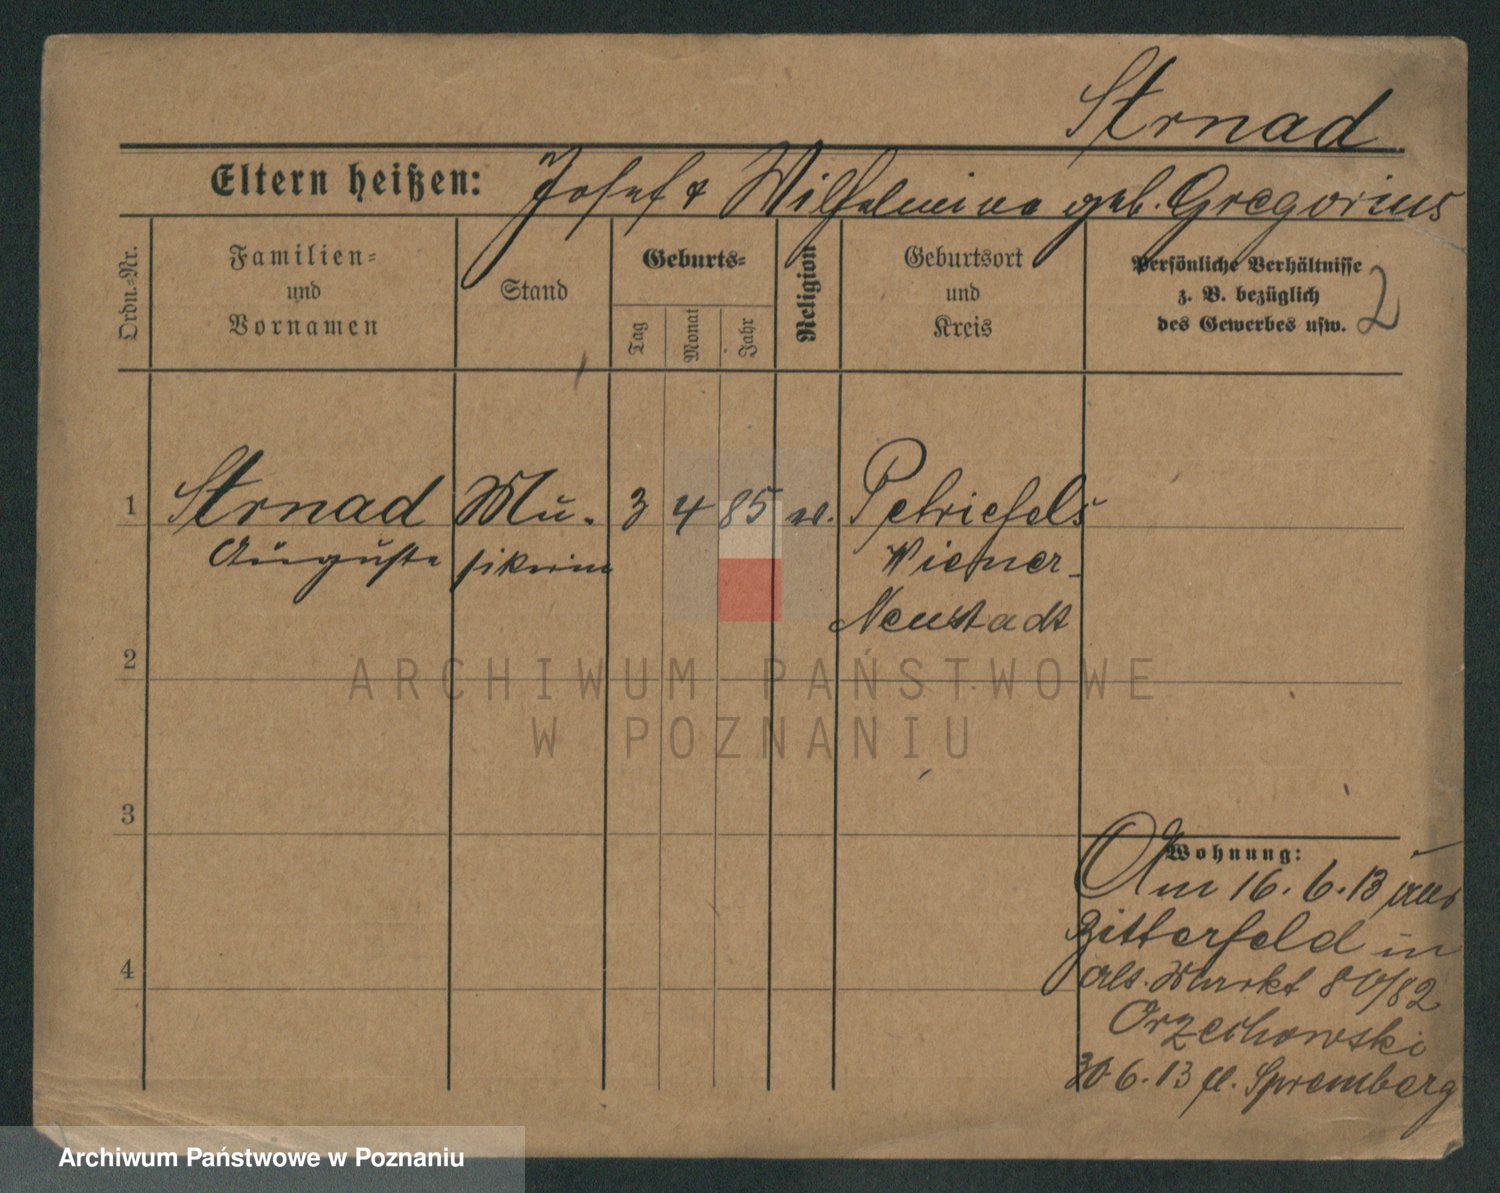 Strnad
Eltern heißen: Josef & Wilhelmine geb. Gregorius
Ordn.-Nr.
Familien-
und
Vornamen
Stand
Geburts-
Tag
Monat
Jahr
Religion
Geburtsort
und
Kreis
Persönliche Verhältnisse
z. B. bezüglich
des Gewerbes usw.
2
1 Strnad Mu- 3 4 85 Petriefels
Auguste sikerin Wiener-
Neustadt
2
ARCHIWUM PAŃSTWOWE
W POZNANIU
3
Wohnung:
Am 16.6.13 aus
Bitterfeld in
Alt. Markt 80/82
Orzechowski
30.6.13 Spremberg
4
Archiwum Państwowe w Poznaniu